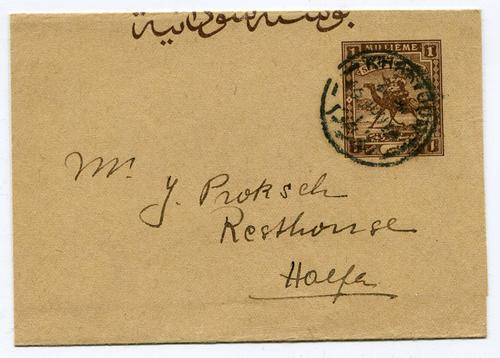 بوستة سودانية
1 MILLIEME 1
KHARTOUM
Mr. J. Proksch
Resthouse
Halfa